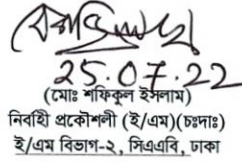 25.07.22
(মোঃ শফিকুল ইসলাম)
নির্বাহী প্রকৌশলী (ই/এম)(চঃদাঃ)
ই/এম বিভাগ-২, সিএএবি, ঢাকা